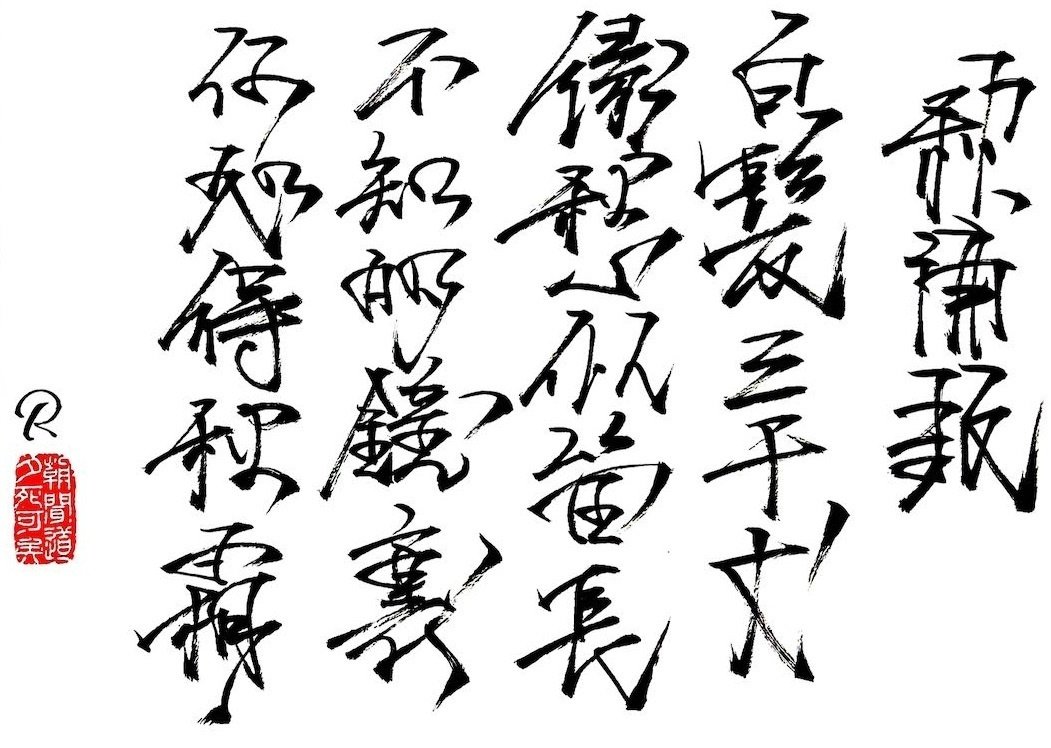 秋浦歌
白髮三千丈
緣愁似箇長
不知明鏡裏
何處得秋霜
R
朝聞道
夕死可矣